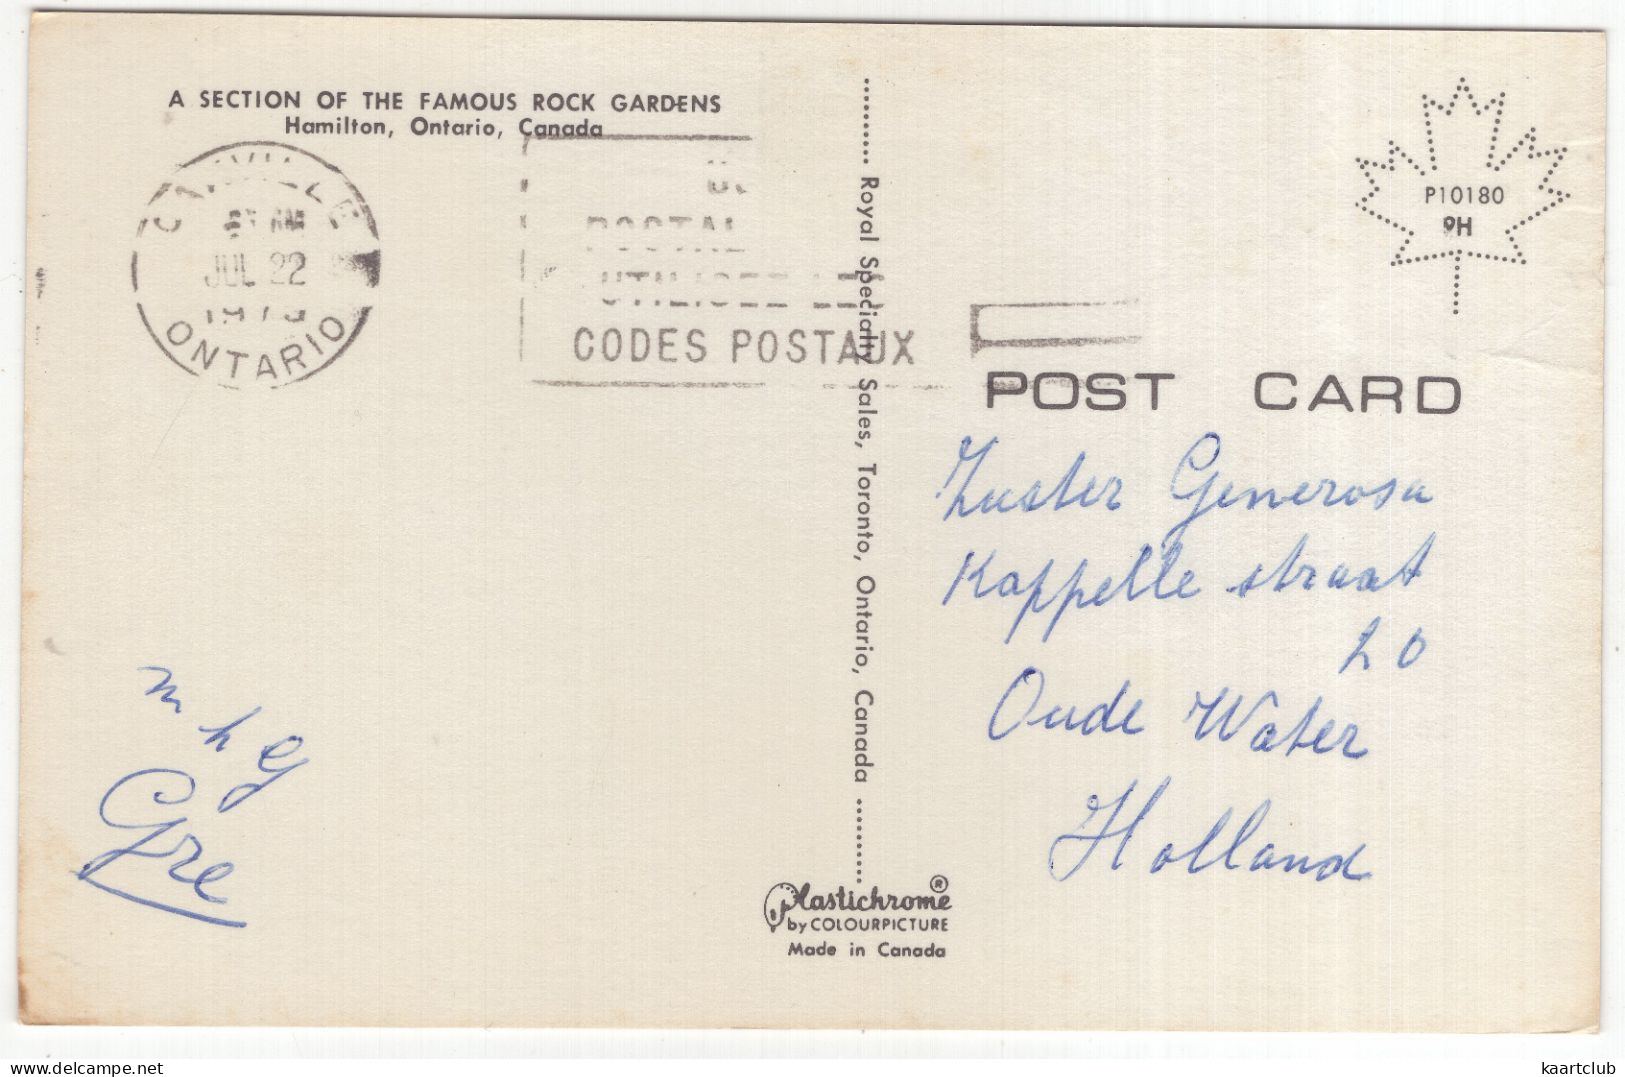 A SECTION OF THE FAMOUS ROCK GARDENS
Hamilton, Ontario, Canada
AM
JUL 22
ONTARIO
POSTAL
UTILISEZ LES
CODES POSTAUX
m h g
Gre
Royal Specialty Sales, Toronto, Ontario, Canada
Plastichrome ®
by COLOURPICTURE
Made in Canada
P10180
9H
POST CARD
Zuster Generosa
Kappelle straat
20
Oude Water
Holland
kaartclub